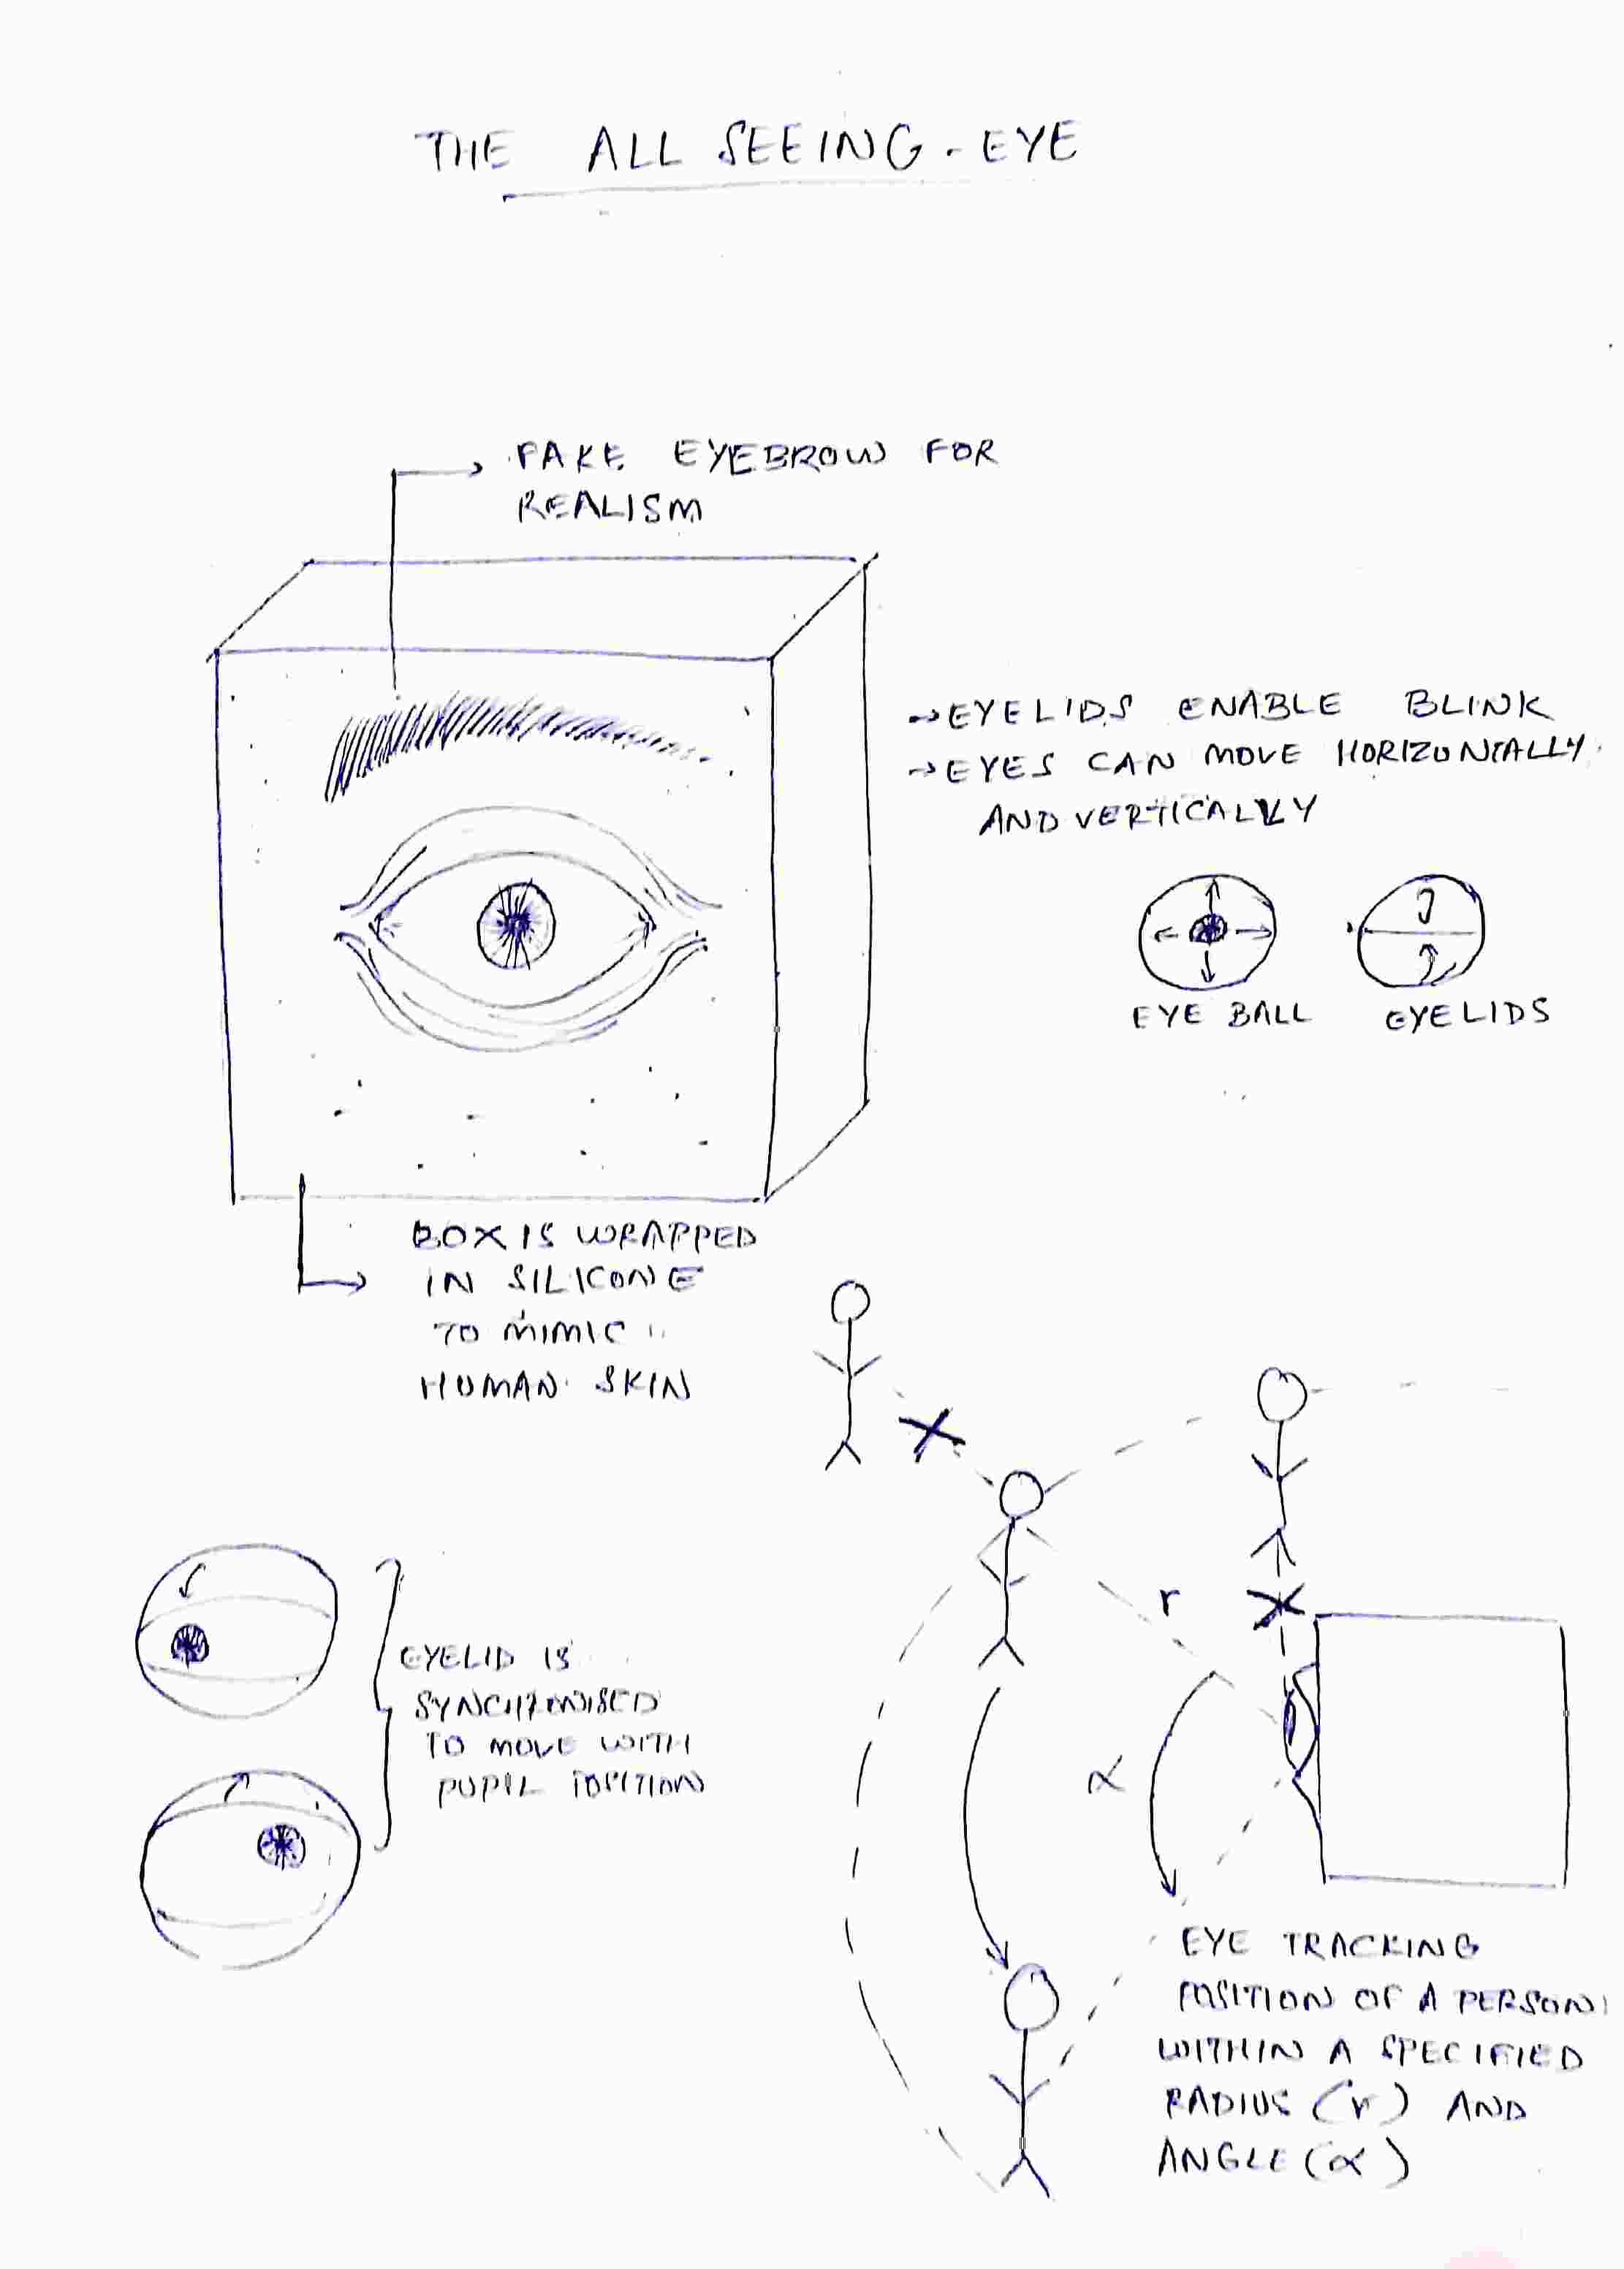 THE ALL SEEING-EYE
FAKE EYEBROW FOR
REALISM
→EYELIDS ENABLE BLINK
→EYES CAN MOVE HORIZONTALLY
AND VERTICALLY
EYE BALL
EYELIDS
BOX IS WRAPPED
IN SILICONE
TO MIMIC
HUMAN SKIN
r
EYELID IS
SYNCHRONISED
TO MOVE WITH
PUPIL POSITION
α
EYE TRACKING
POSITION OF A PERSON
WITHIN A SPECIFIED
RADIUS (r) AND
ANGLE (α)